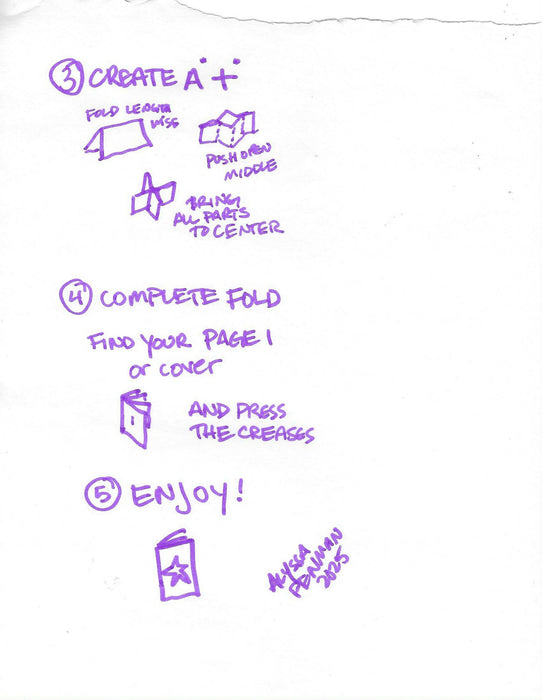 ③ CREATE A "+"
FOLD LENGTH
WISE
PUSH OPEN
MIDDLE
BRING
ALL PARTS
TO CENTER
④ COMPLETE FOLD
FIND YOUR PAGE 1
or cover
1
AND PRESS
THE CREASES
⑤ ENJOY!
ALYSSA
PENMAN
2025